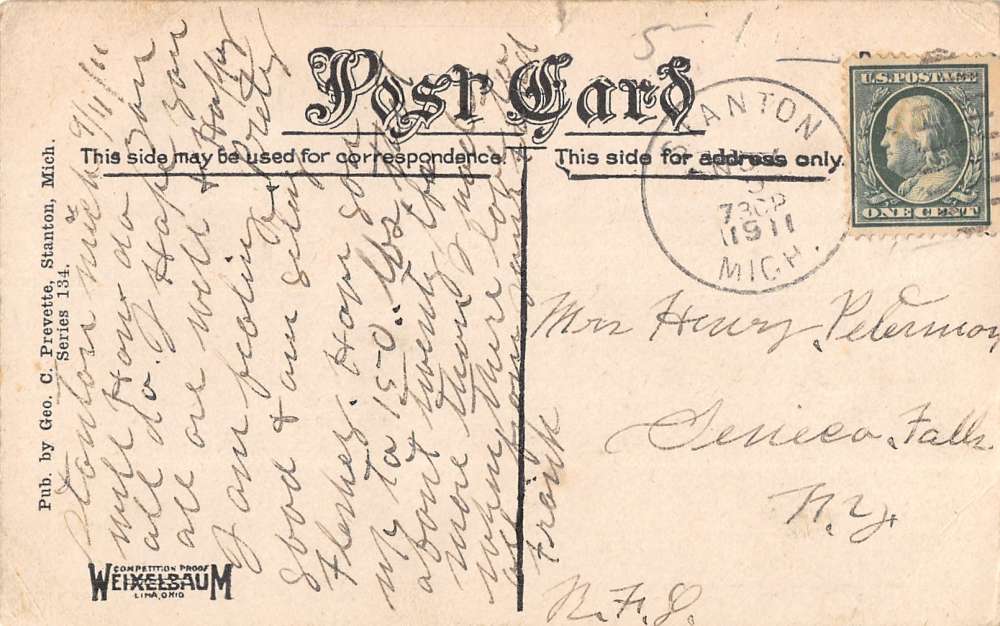 Post Card
This side may be used for correspondence.
This side for address only.
U.S. POSTAGE
ONE CENT
STANTON
NOV
730P
1911
MICH.
5
Pub. by Geo. C. Prevette, Stanton, Mich.
Series 134.
Stanton Mich 9/11/11
well How do you
all do. I Hope you
all are well & Happy
I am feeling pretty
good & am geting
fleshey. Have gone
up to 150. lbs
about twenty lbs
more than I
Frank
Mrs Henry Petermoy
Seneca Falls
N. Y.
R. F. D.
COMPETITION PROOF
WEIXELBAUM
LIMA, OHIO